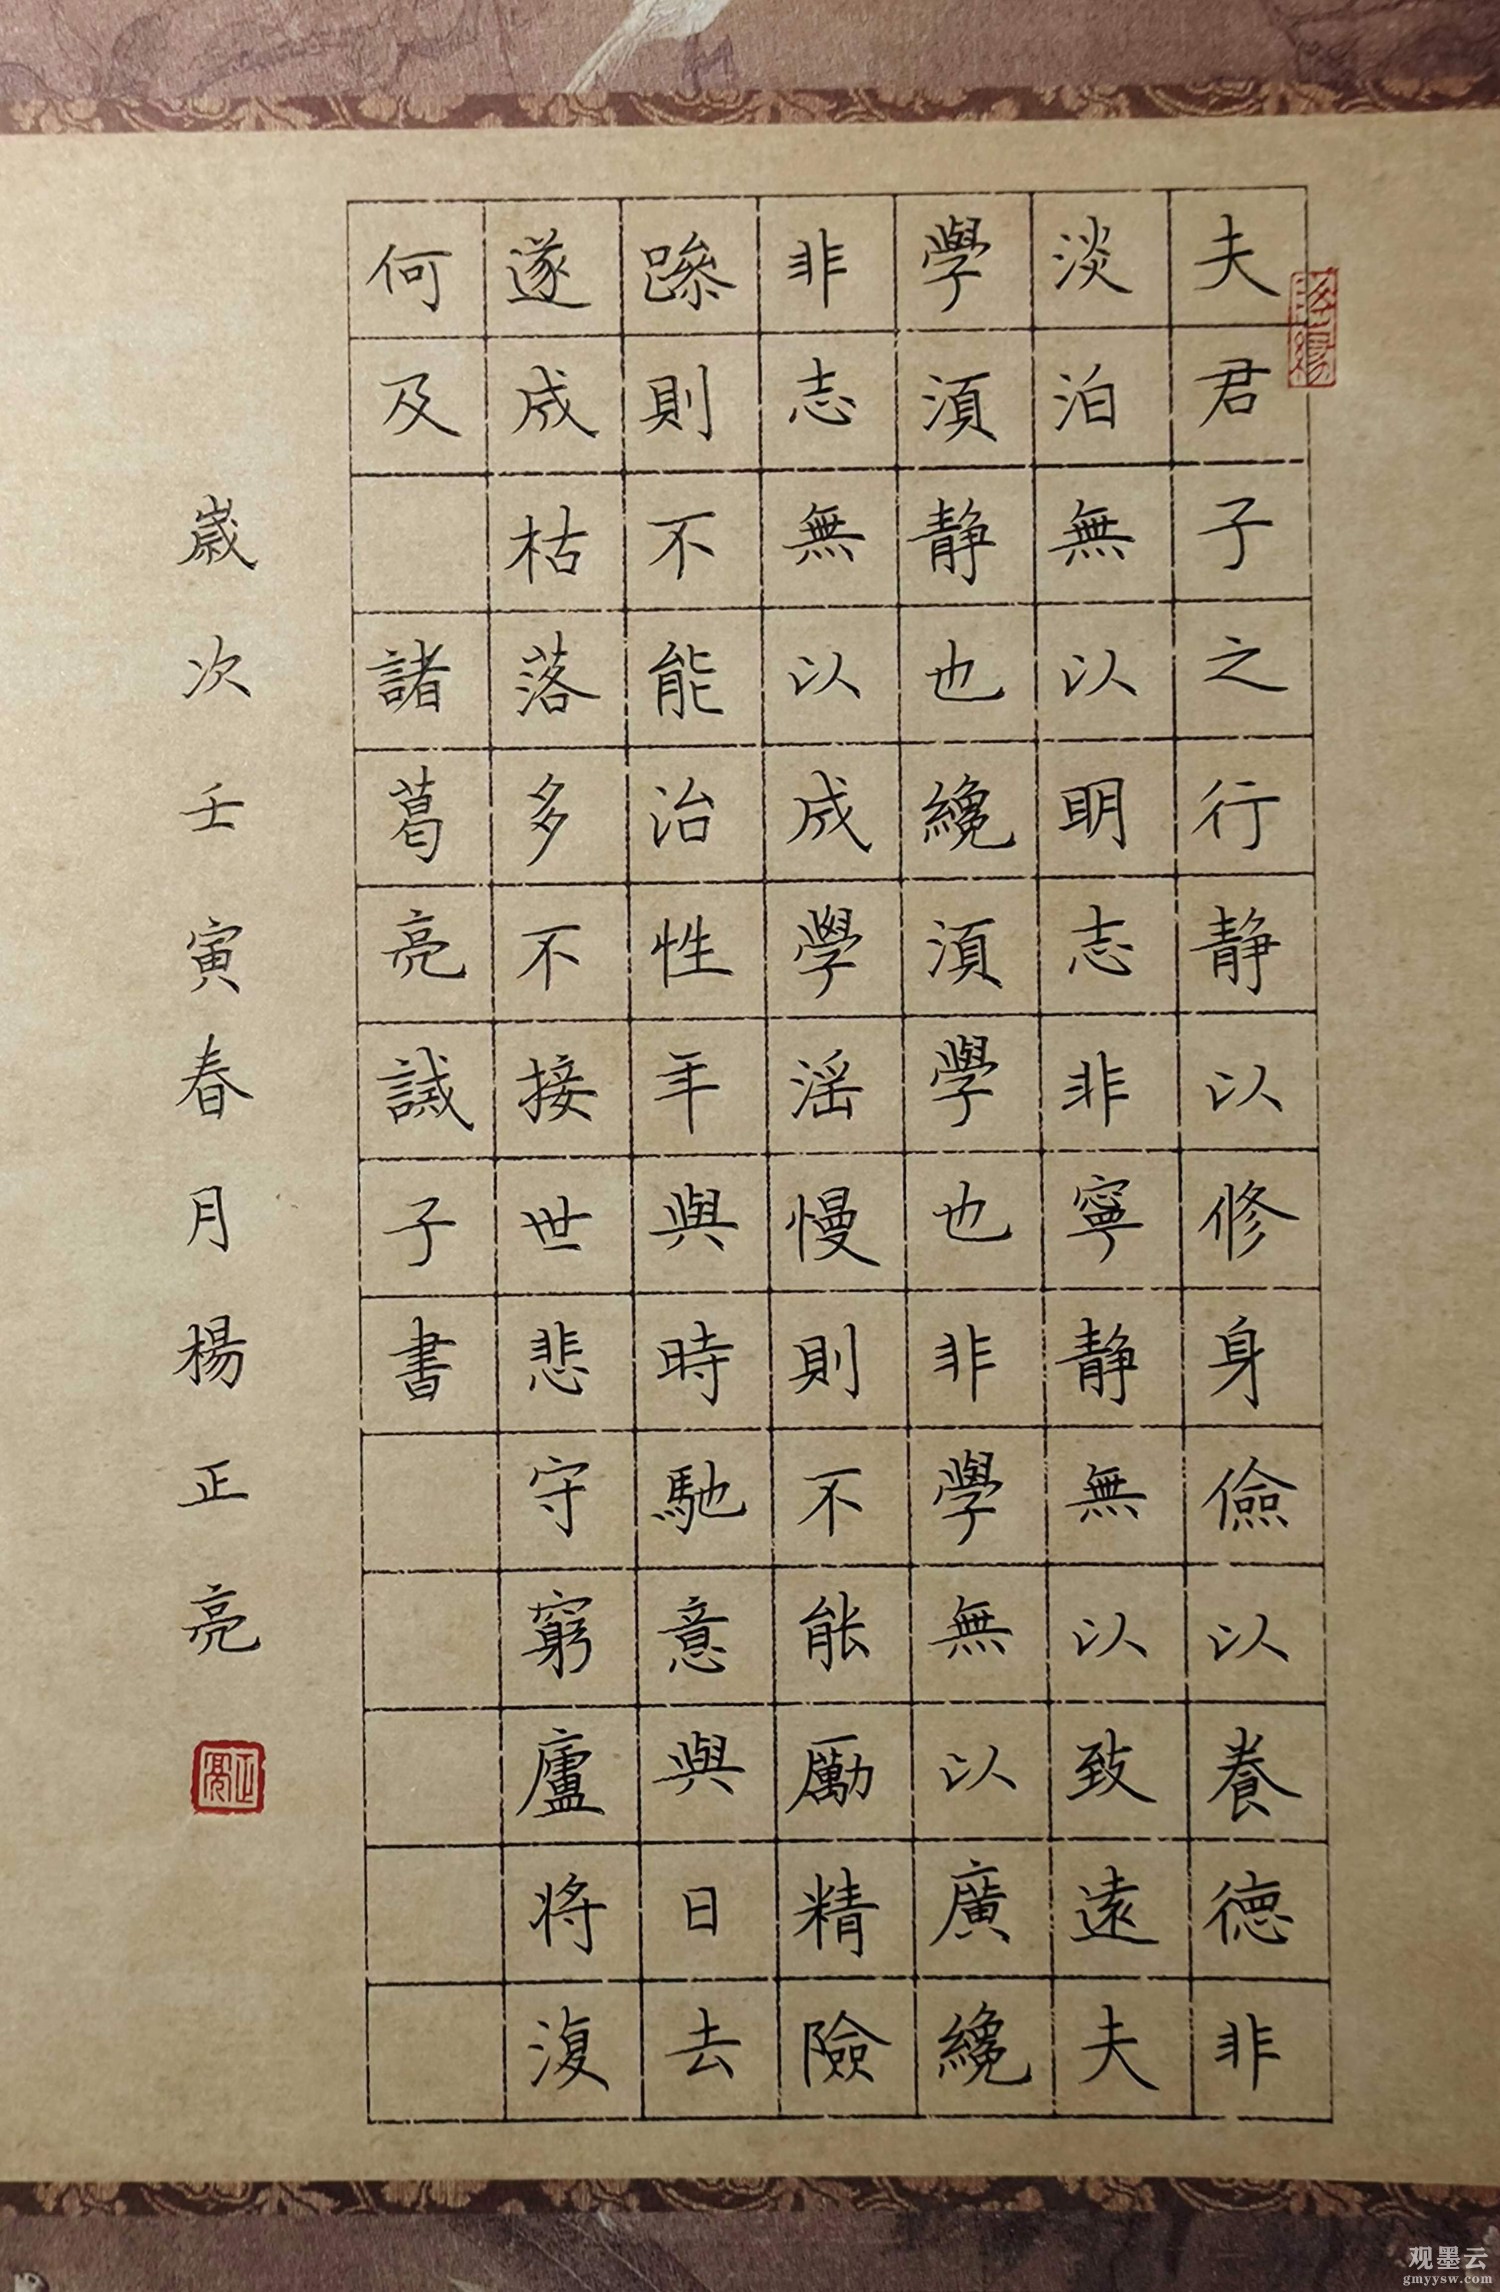 夫君子之行静以修身儉以養德非
淡泊無以眀志非寧静無以致遠夫
學湏静也纔湏學也非學無以廣纔
非志無以成學滛慢則不能勵精險
躁則不能治性年與時馳意與日去
遂成枯落多不接世悲守窮廬将復
何及 諸葛亮誡子書
歲次壬寅春月楊正亮
正亮
观墨云
gmyysw.com